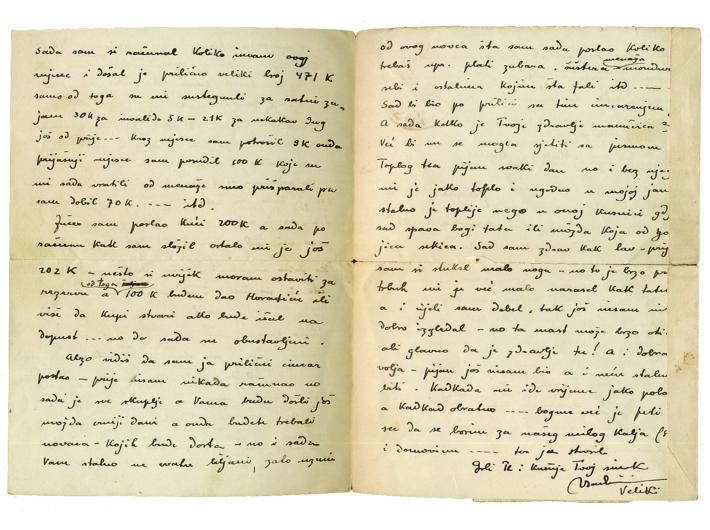 Sada sam si računal koliko imam ovaj
mjesec i došal je prilično veliki broj 471 K
samo od toga su mi sustegnuli za ratni za-
jam 30 K za invalide 5 K – 21 K za nekakav dug
još od prije --- Kroz mjesec sam potrošil 9 K onda
prijašnji mjesec sam posudil 100 K koje su
mi sada vratili od menaže smo prišparali pa
sam dobil 70 K. --- itd.
Jučer sam poslao kući 200 K a sada po
računu kak sam složil ostalo mi je još
202 K – nešto si uvijek moram ostaviti za
rezervu a od toga 100 K budem dao Horvatiću ili
više da kupi stvari ako bude išel na
dopust --- no do sada su obustavljeni.
Alzo vidiš da sam ja prilični cincar
postao – prije nisam nikada računao no
sada je sve skuplje a Vama budu došli još
možda crniji dani a onda budete trebali
novaca – kojih bude dosta – no i sada
Vam stalno ne cvatu ljiljani, zato uzmi
od ovog novca šta sam sada poslao koliko
trebaš npr. plati zubara, menaža
sebi i ostalima kojim šta fali itd ---
Sad bi bio po prilici sa tim
A sada kolko je Tvoje zdravlje mamica
Već bi mi se mogla sjetiti sa pismom
Toplog tea pijem svaki dan no i bez
mi je jako toplo i ugodno u mojoj
stalno je toplije nego u onoj kuhnici
sad spava bogi tata ili možda koja od
sekica. Sad sam zdrav kak lav –
sam si štukel malo nogu – no to je brzo
trbuh mi je već malo narasel kak tatu
a i cijeli sam debel, tak još nisam
dobro izgledal – no ta mast može brzo
ali glavno da je zdravlje tu! A i dobra
volja – pijan još nisam bio a i neću stalno
biti. Kadkada mi ide vrijeme jako
a kadkad obratno ---- bogme već je peti
mjesec da se borim za našeg milog kralja
i domovinu ---- to je stvorilo
Grli Te i kušuje Tvoj sinek
Veliki